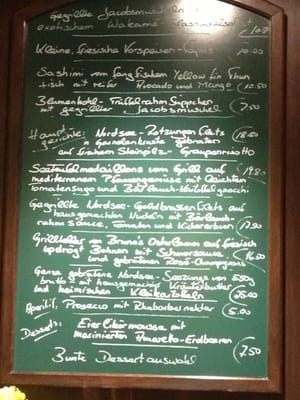 Gegrillte Jacobsmuscheln
exotischem Wakame-
Kleine, friesische Vorspeisen-Tapas 10.00
Sashimi vom fangfrischem Yellow Fin Thun
fisch mit reifer Avocado und Mango 12.50
Blumenkohl-Trüffelrahm Süppchen
mit gegrillter Jacobsmuschel 7,50
Haupt
gerichte: Nordsee-Rotzungenfilets 18.50
in Garnelenkruste gebraten
auf frischem Steinpilz-
Seeteufelmedaillons vom Grill auf 19.80
mediterranem Pfannengemüse mit leichten
Tomatensugo und Bärlauch-Kartoffelgnocchi
Gegrillte Nordsee-Goldbrassenfilets auf
hausgemachten Nudeln mit Bärlauch-
rahm Sauce, Tomaten und Kichererbsen 17.50
Grillteller von Bruno's Osterlamm auf friesisch
updrögt Bohnen mit Schmorsauce 16.50
und gebratenen Rosé-Champignons
Ganze gebratene Nordsee-Seezunge von 550g
brutto mit hausgemachter Kräuterbutter
und heimischen Kleikartoffeln 25.00
Aperitif: Prosecco mit Rhabarbernektar 5.00
Desserts: Eierlikörmousse mit
marinierten Amaretto-Erdbeeren 7.50
Bunte Dessertauswahl